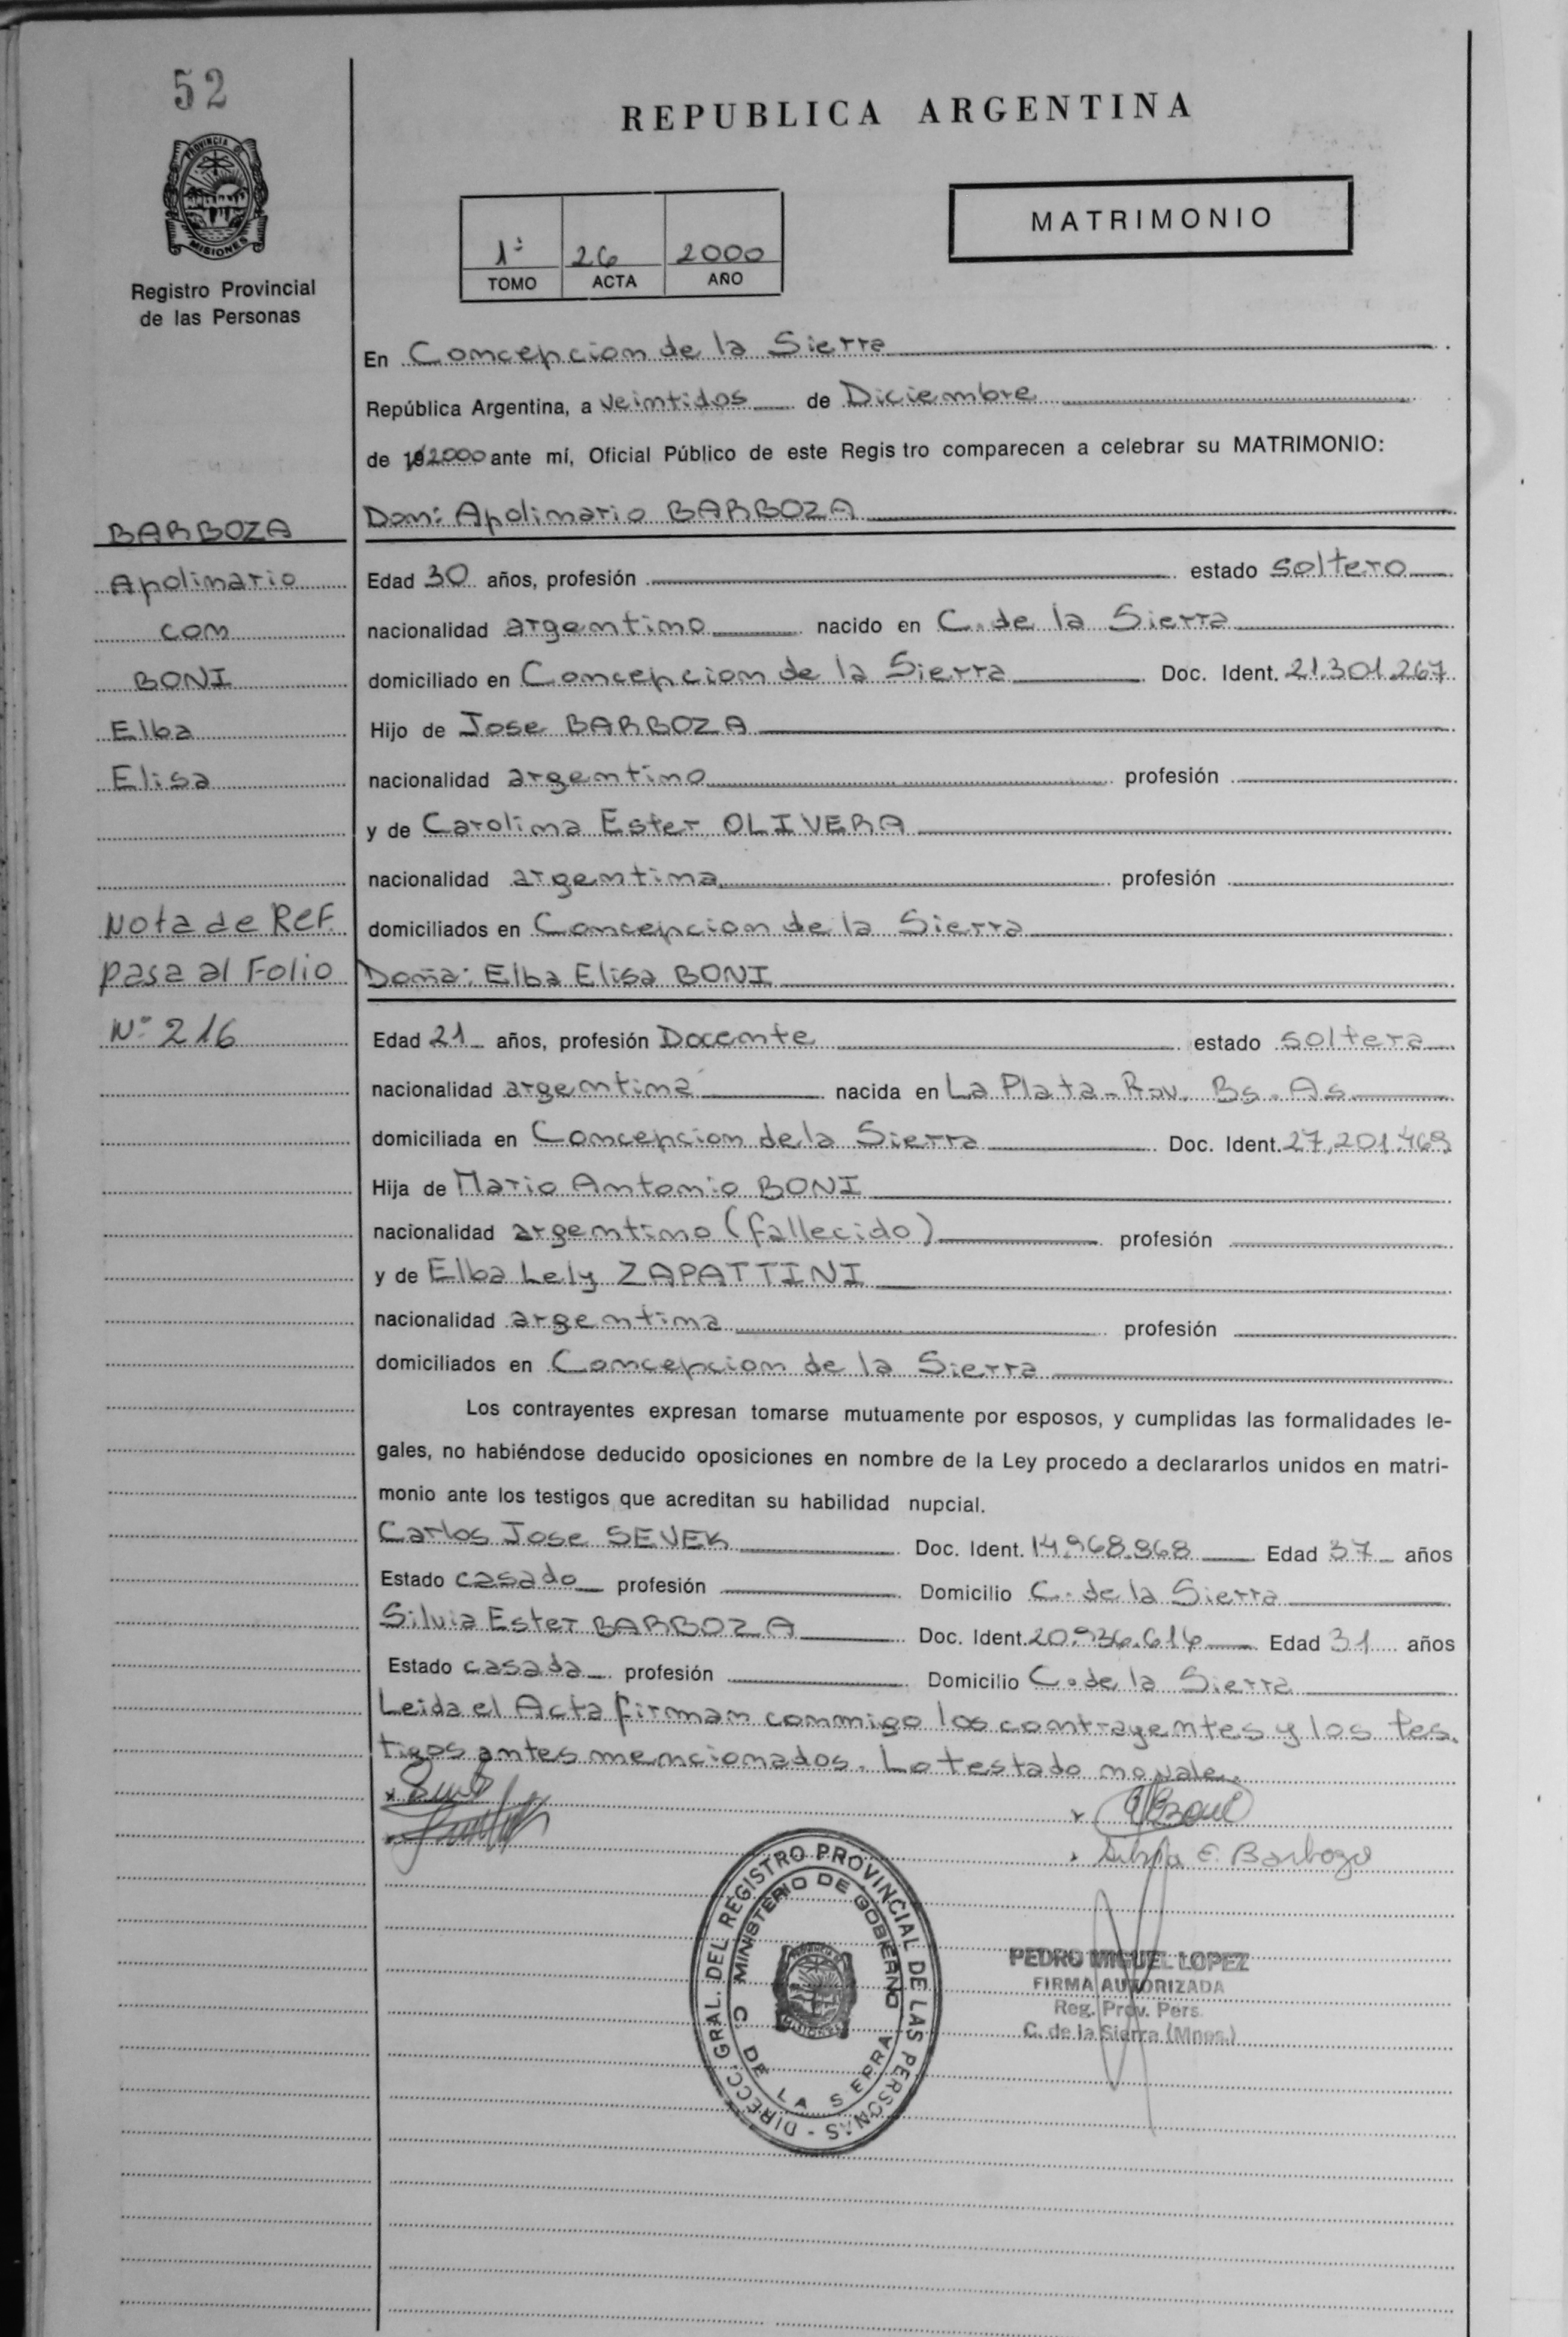 52
REPUBLICA ARGENTINA
PROVINCIA DE
MISIONES
Registro Provincial
de las Personas
1º 26 2000
TOMO ACTA AÑO
MATRIMONIO
En Concepcion de la Sierra
República Argentina, a veintidos de Diciembre
de 19 2000 ante mí, Oficial Público de este Regis tro comparecen a celebrar su MATRIMONIO:
Don: Apolinario BARBOZA
Edad 30 años, profesión estado soltero
nacionalidad argentino nacido en C. de la Sierra
domiciliado en Concepcion de la Sierra Doc. Ident. 21.301.267
Hijo de Jose BARBOZA
nacionalidad argentino profesión
y de Carolina Ester OLIVERA
nacionalidad argentina profesión
domiciliados en Concepcion de la Sierra
BARBOZA
Apolinario
con
BONI
Elba
Elisa
Nota de Ref.
pasa al Folio
Nº 216
Doña: Elba Elisa BONI
Edad 21 años, profesión Docente estado soltera
nacionalidad argentina nacida en La Plata - Prov. Bs. As
domiciliada en Concepcion de la Sierra Doc. Ident. 27.201.469
Hija de Mario Antonio BONI
nacionalidad argentino (fallecido) profesión
y de Elba Lely ZAPATTINI
nacionalidad argentina profesión
domiciliados en Concepcion de la Sierra
Los contrayentes expresan tomarse mutuamente por esposos, y cumplidas las formalidades le-
gales, no habiéndose deducido oposiciones en nombre de la Ley procedo a declararlos unidos en matri-
monio ante los testigos que acreditan su habilidad nupcial.
Carlos Jose SEVEK Doc. Ident. 14.968.868 Edad 37 años
Estado casado profesión Domicilio C. de la Sierra
Silvia Ester BARBOZA Doc. Ident. 20.936.614 Edad 31 años
Estado casada profesión Domicilio C. de la Sierra
Leida el Acta firman conmigo los contrayentes y los tes.
tigos antes mencionados. Lo testado no vale.
Silvia E. Barboza
DIRECC. GRAL. DEL REGISTRO PROVINCIAL DE LAS PERSONAS -
MINISTERIO DE GOBIERNO
C. DE LA SIERRA
PEDRO MIGUEL LOPEZ
FIRMA AUTORIZADA
Reg. Prov. Pers.
C. de la Sierra (Mnes.)